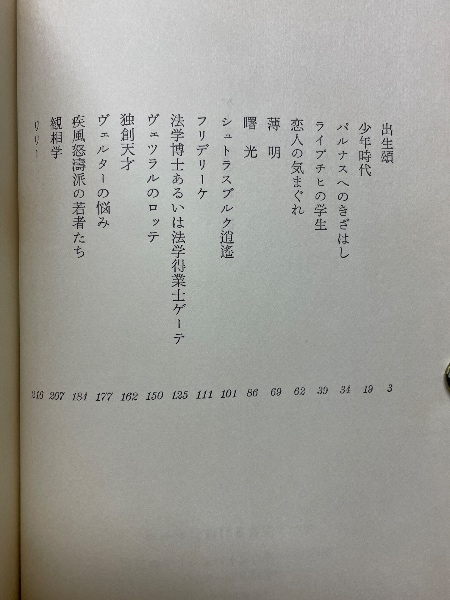 出生頌 3
少年時代 19
パルナスへのきざはし 34
ライプチヒの学生 39
恋人の気まぐれ 62
薄明 69
曙光 86
シュトラスブルク逍遙 101
フリデリーケ 111
法学博士あるいは法学得業士ゲーテ 125
ヴェツラルのロッテ 150
独創天才 162
ヴェルターの悩み 177
疾風怒濤派の若者たち 184
観相学 207
リリー 216